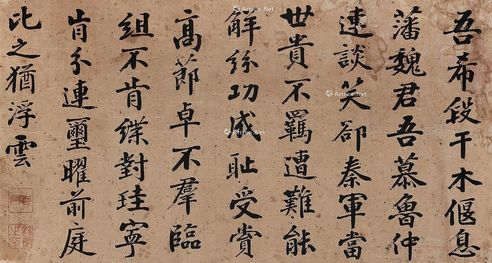 吾希段干木偃息
藩魏君吾慕魯仲
連談笑卻秦軍當
世貴不羈遭難能
解紛功成恥受賞
高節卓不羣臨
組不肯緤對珪寧
肯分連璽曜前庭
比之猶浮雲